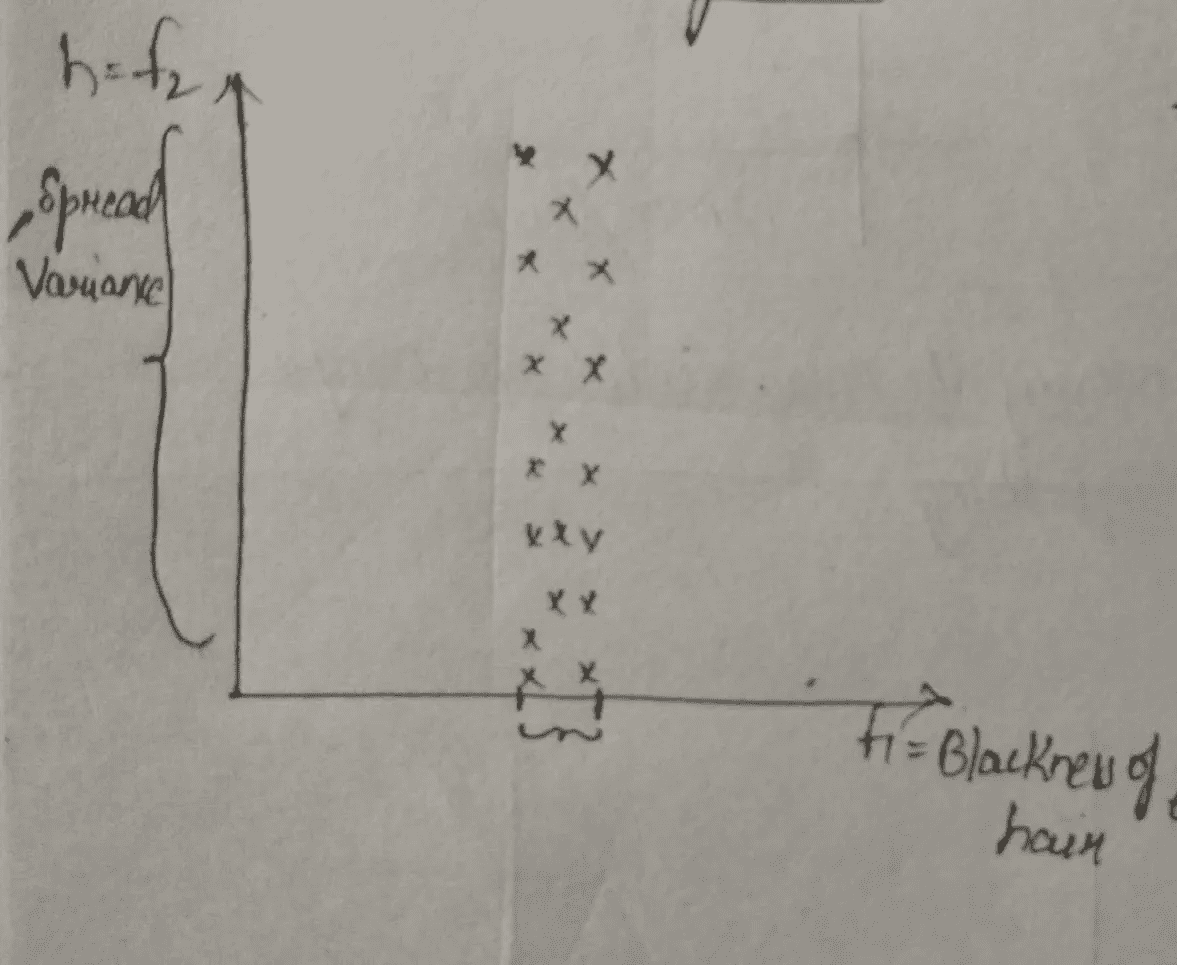 h = f2
Spread
Variance
f1 = Blackness of
hair